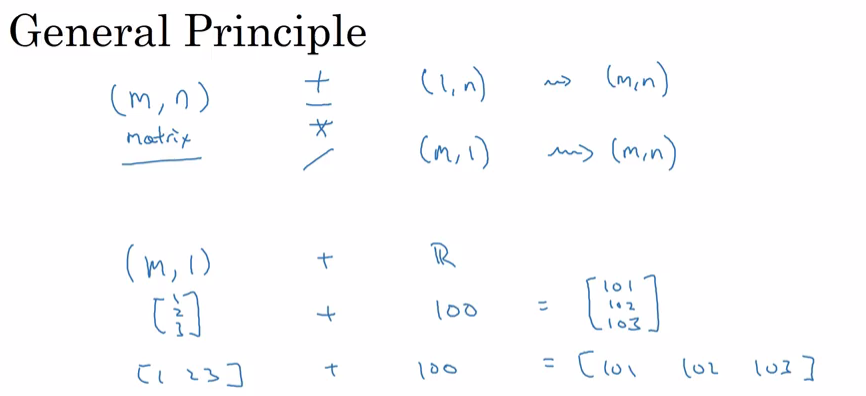 General Principle
(m, n) + (1, n) ⇝ (m, n)
matrix - * / (m, 1) ⇝ (m, n)
(m, 1) + ℝ
[1 2 3] + 100 = [101 102 103]
[1 2 3] + 100 = [101 102 103]